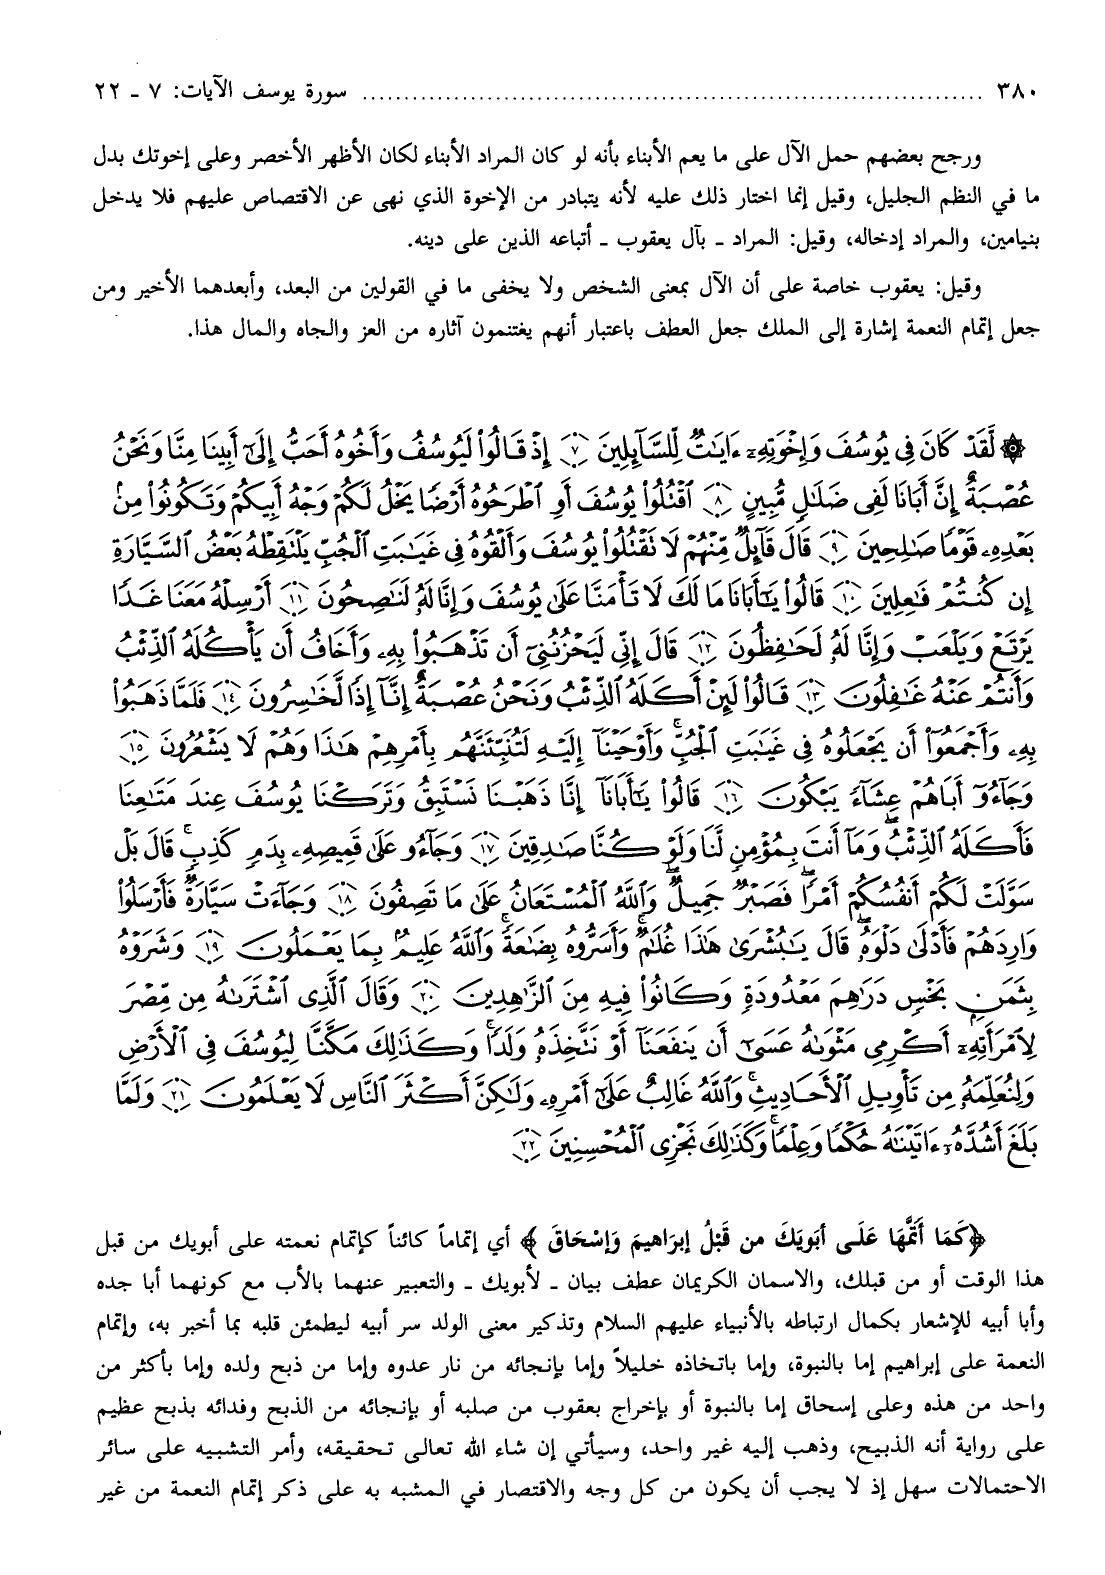 ٣٨٠ ........................................................................ سورة يوسف الآيات: ٧ ـ ٢٢
ورجح بعضهم حمل الآل على ما يعم الأبناء بأنه لو كان المراد الأبناء لكان الأظهر الأخصر وعلى إخوتك بدل
ما في النظم الجليل، وقيل إنما اختار ذلك عليه لأنه يتبادر من الإخوة الذي نهى عن الاقتصاص عليهم فلا يدخل
بنيامين، والمراد إدخاله، وقيل: المراد ـ بآل يعقوب ـ أتباعه الذين على دينه.
وقيل: يعقوب خاصة على أن الآل بمعنى الشخص ولا يخفى ما في القولين من البعد، وأبعدهما الأخير ومن
جعل إتمام النعمة إشارة إلى الملك جعل العطف باعتبار أنهم يغتنمون آثاره من العز والجاه والمال هذا.
۞ لَّقَدْ كَانَ فِى يُوسُفَ وَإِخْوَتِهِۦٓ ءَايَٰتٌ لِّلسَّآئِلِينَ ٧ إِذْ قَالُوا۟ لَيُوسُفُ وَأَخُوهُ أَحَبُّ إِلَىٰٓ أَبِينَا مِنَّا وَنَحْنُ
عُصْبَةٌ إِنَّ أَبَانَا لَفِى ضَلَٰلٍ مُّبِينٍ ٨ ٱقْتُلُوا۟ يُوسُفَ أَوِ ٱطْرَحُوهُ أَرْضًا يَخْلُ لَكُمْ وَجْهُ أَبِيكُمْ وَتَكُونُوا۟ مِنۢ
بَعْدِهِۦ قَوْمًا صَٰلِحِينَ ٩ قَالَ قَآئِلٌ مِّنْهُمْ لَا تَقْتُلُوا۟ يُوسُفَ وَأَلْقُوهُ فِى غَيَٰبَتِ ٱلْجُبِّ يَلْتَقِطْهُ بَعْضُ ٱلسَّيَّارَةِ
إِن كُنتُمْ فَٰعِلِينَ ١٠ قَالُوا۟ يَٰٓأَبَانَا مَا لَكَ لَا تَأْمَ۫نَّا عَلَىٰ يُوسُفَ وَإِنَّا لَهُۥ لَنَٰصِحُونَ ١١ أَرْسِلْهُ مَعَنَا غَدًا
يَرْتَعْ وَيَلْعَبْ وَإِنَّا لَهُۥ لَحَٰفِظُونَ ١٢ قَالَ إِنِّى لَيَحْزُنُنِىٓ أَن تَذْهَبُوا۟ بِهِۦ وَأَخَافُ أَن يَأْكُلَهُ ٱلذِّئْبُ
وَأَنتُمْ عَنْهُ غَٰفِلُونَ ١٣ قَالُوا۟ لَئِنْ أَكَلَهُ ٱلذِّئْبُ وَنَحْنُ عُصْبَةٌ إِنَّآ إِذًا لَّخَٰسِرُونَ ١٤ فَلَمَّا ذَهَبُوا۟
بِهِۦ وَأَجْمَعُوٓا۟ أَن يَجْعَلُوهُ فِى غَيَٰبَتِ ٱلْجُبِّ ۚ وَأَوْحَيْنَآ إِلَيْهِ لَتُنَبِّئَنَّهُم بِأَمْرِهِمْ هَٰذَا وَهُمْ لَا يَشْعُرُونَ ١٥
وَجَآءُوٓ أَبَاهُمْ عِشَآءً يَبْكُونَ ١٦ قَالُوا۟ يَٰٓأَبَانَآ إِنَّا ذَهَبْنَا نَسْتَبِقُ وَتَرَكْنَا يُوسُفَ عِندَ مَتَٰعِنَا
فَأَكَلَهُ ٱلذِّئْبُ ۖ وَمَآ أَنتَ بِمُؤْمِنٍ لَّنَا وَلَوْ كُنَّا صَٰدِقِينَ ١٧ وَجَآءُو عَلَىٰ قَمِيصِهِۦ بِدَمٍ كَذِبٍ ۚ قَالَ بَلْ
سَوَّلَتْ لَكُمْ أَنفُسُكُمْ أَمْرًا ۖ فَصَبْرٌ جَمِيلٌ ۖ وَٱللَّهُ ٱلْمُسْتَعَانُ عَلَىٰ مَا تَصِفُونَ ١٨ وَجَآءَتْ سَيَّارَةٌ فَأَرْسَلُوا۟
وَارِدَهُمْ فَأَدْلَىٰ دَلْوَهُۥ ۖ قَالَ يَٰبُشْرَىٰ هَٰذَا غُلَٰمٌ ۚ وَأَسَرُّوهُ بِضَٰعَةً ۚ وَٱللَّهُ عَلِيمٌۢ بِمَا يَعْمَلُونَ ١٩ وَشَرَوْهُ
بِثَمَنٍۭ بَخْسٍ دَرَٰهِمَ مَعْدُودَةٍ وَكَانُوا۟ فِيهِ مِنَ ٱلزَّٰهِدِينَ ٢٠ وَقَالَ ٱلَّذِى ٱشْتَرَىٰهُ مِن مِّصْرَ
لِٱمْرَأَتِهِۦٓ أَكْرِمِى مَثْوَىٰهُ عَسَىٰٓ أَن يَنفَعَنَآ أَوْ نَتَّخِذَهُۥ وَلَدًا ۚ وَكَذَٰلِكَ مَكَّنَّا لِيُوسُفَ فِى ٱلْأَرْضِ
وَلِنُعَلِّمَهُۥ مِن تَأْوِيلِ ٱلْأَحَادِيثِ ۚ وَٱللَّهُ غَالِبٌ عَلَىٰٓ أَمْرِهِۦ وَلَٰكِنَّ أَكْثَرَ ٱلنَّاسِ لَا يَعْلَمُونَ ٢١ وَلَمَّا
بَلَغَ أَشُدَّهُۥٓ ءَاتَيْنَٰهُ حُكْمًا وَعِلْمًا ۚ وَكَذَٰلِكَ نَجْزِى ٱلْمُحْسِنِينَ ٢٢
﴿كَمَا أَتَمَّهَا عَلَى أَبَوَيْكَ من قَبْلُ إبرَاهيمَ وَإسْحَاقَ﴾ أي إتماماً كائناً كإتمام نعمته على أبويك من قبل
هذا الوقت أو من قبلك، والاسمان الكريمان عطف بيان ـ لأبويك ـ والتعبير عنهما بالأب مع كونهما أبا جده
وأبا أبيه للإشعار بكمال ارتباطه بالأنبياء عليهم السلام وتذكير معنى الولد سر أبيه ليطمئن قلبه بما أخبر به، وإتمام
النعمة على إبراهيم إما بالنبوة، وإما باتخاذه خليلاً وإما بإنجائه من نار عدوه وإما من ذبح ولده وإما بأكثر من
واحد من هذه وعلى إسحاق إما بالنبوة أو بإخراج يعقوب من صلبه أو بإنجائه من الذبح وفدائه بذبح عظيم
على رواية أنه الذبيح، وذهب إليه غير واحد، وسيأتي إن شاء الله تعالى تحقيقه، وأمر التشبيه على سائر
الاحتمالات سهل إذ لا يجب أن يكون من كل وجه والاقتصار في المشبه به على ذكر إتمام النعمة من غير